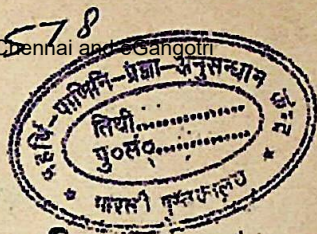 57.8
Chennai and eGangotri
महर्षि-पाणिनि-प्रज्ञा-अनुसन्धान केन्द्र
तिथी................
पु०सं०................
* भारती पुस्तकालय *